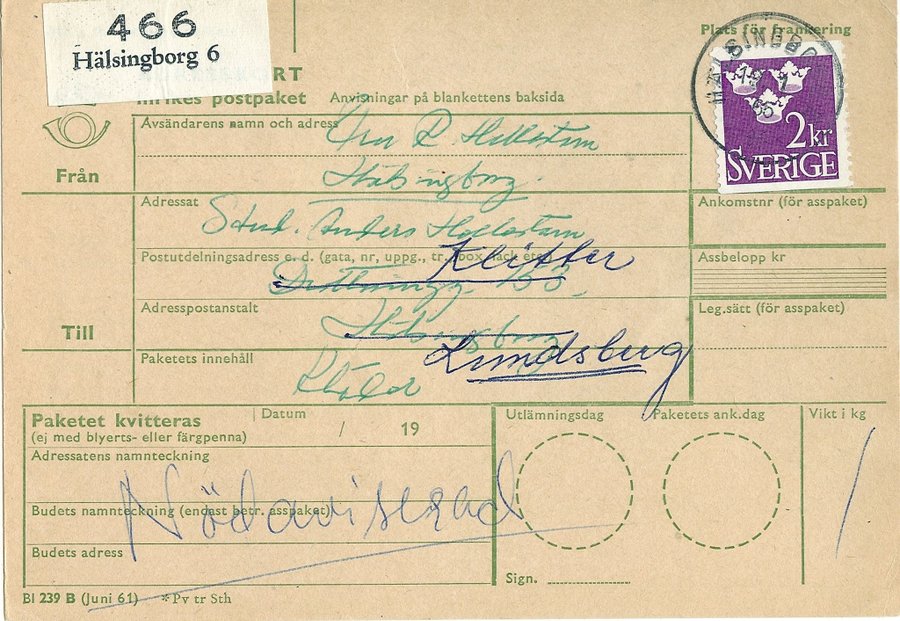 466
Hälsingborg 6
Plats för frankering
HÄLSINGBORG
2 kr
SVERIGE
Inrikes postpaket Anvisningar på blankettens baksida
Från
Avsändarens namn och adress
R. Hellstam
Hälsingborg.
Adressat
Stud. Anders Hellstam
Ankomstnr (för asspaket)
Postutdelningsadress e. d. (gata, nr, uppg., tr., box, fack etc.)
Klitter
153
Assbelopp kr
Till
Adresspostanstalt
Hälsingborg
Lundsberg
Leg.sätt (för asspaket)
Paketets innehåll
Kläder
Paketet kvitteras
(ej med blyerts- eller färgpenna)
Datum / 19
Utlämningsdag
Paketets ank.dag
Vikt i kg
/
Adressatens namnteckning
Nödaviserad
Budets namnteckning (endast betr. asspaket)
Budets adress
Sign.
Bl 239 B (Juni 61) *Pv tr Sth